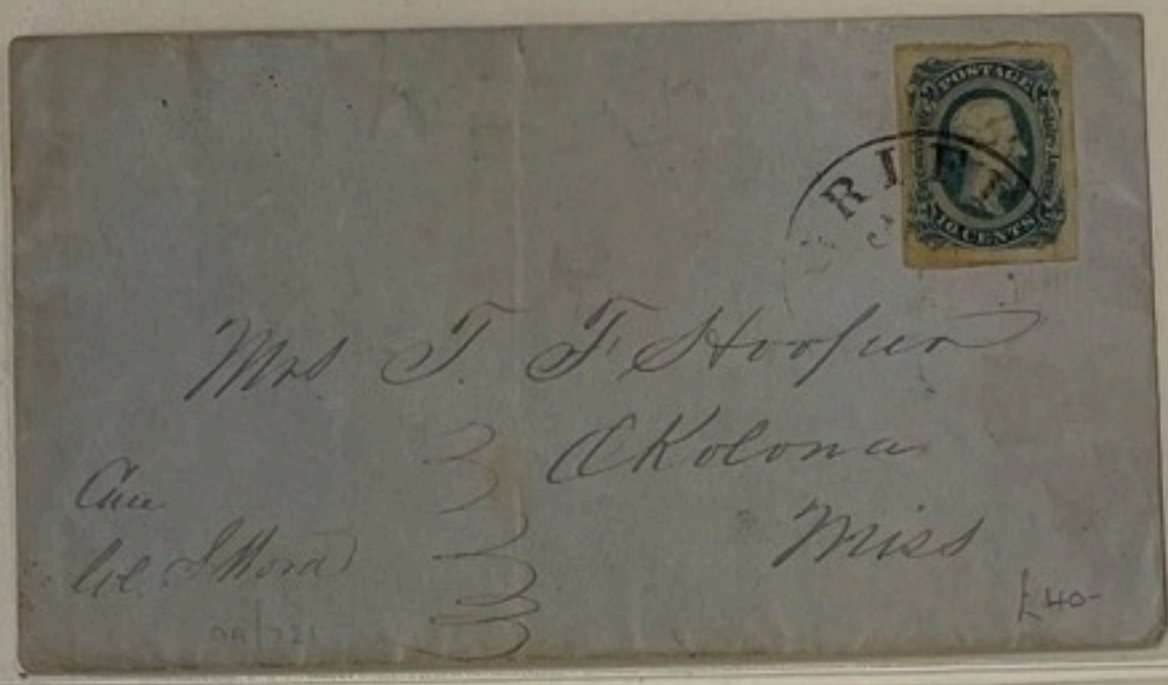 POSTAGE
10 CENTS
RIF
Mrs T. F. Hooper
Okolona
Miss
Care
Col.
£40-